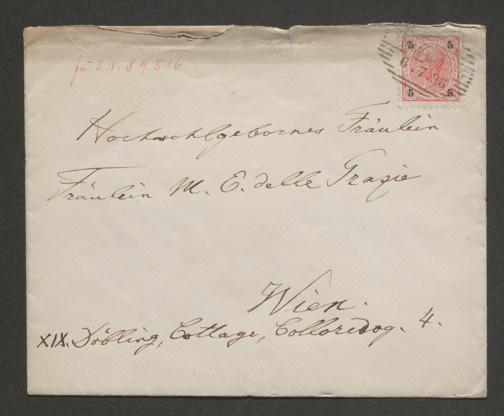 zu I.N. 89.516
5 5
5 5
Hochwohlgebornes Fräulein
Fräulein M. E. delle Grazie
Wien.
XIX. Döbling, Cottage, Colloredog. 4.